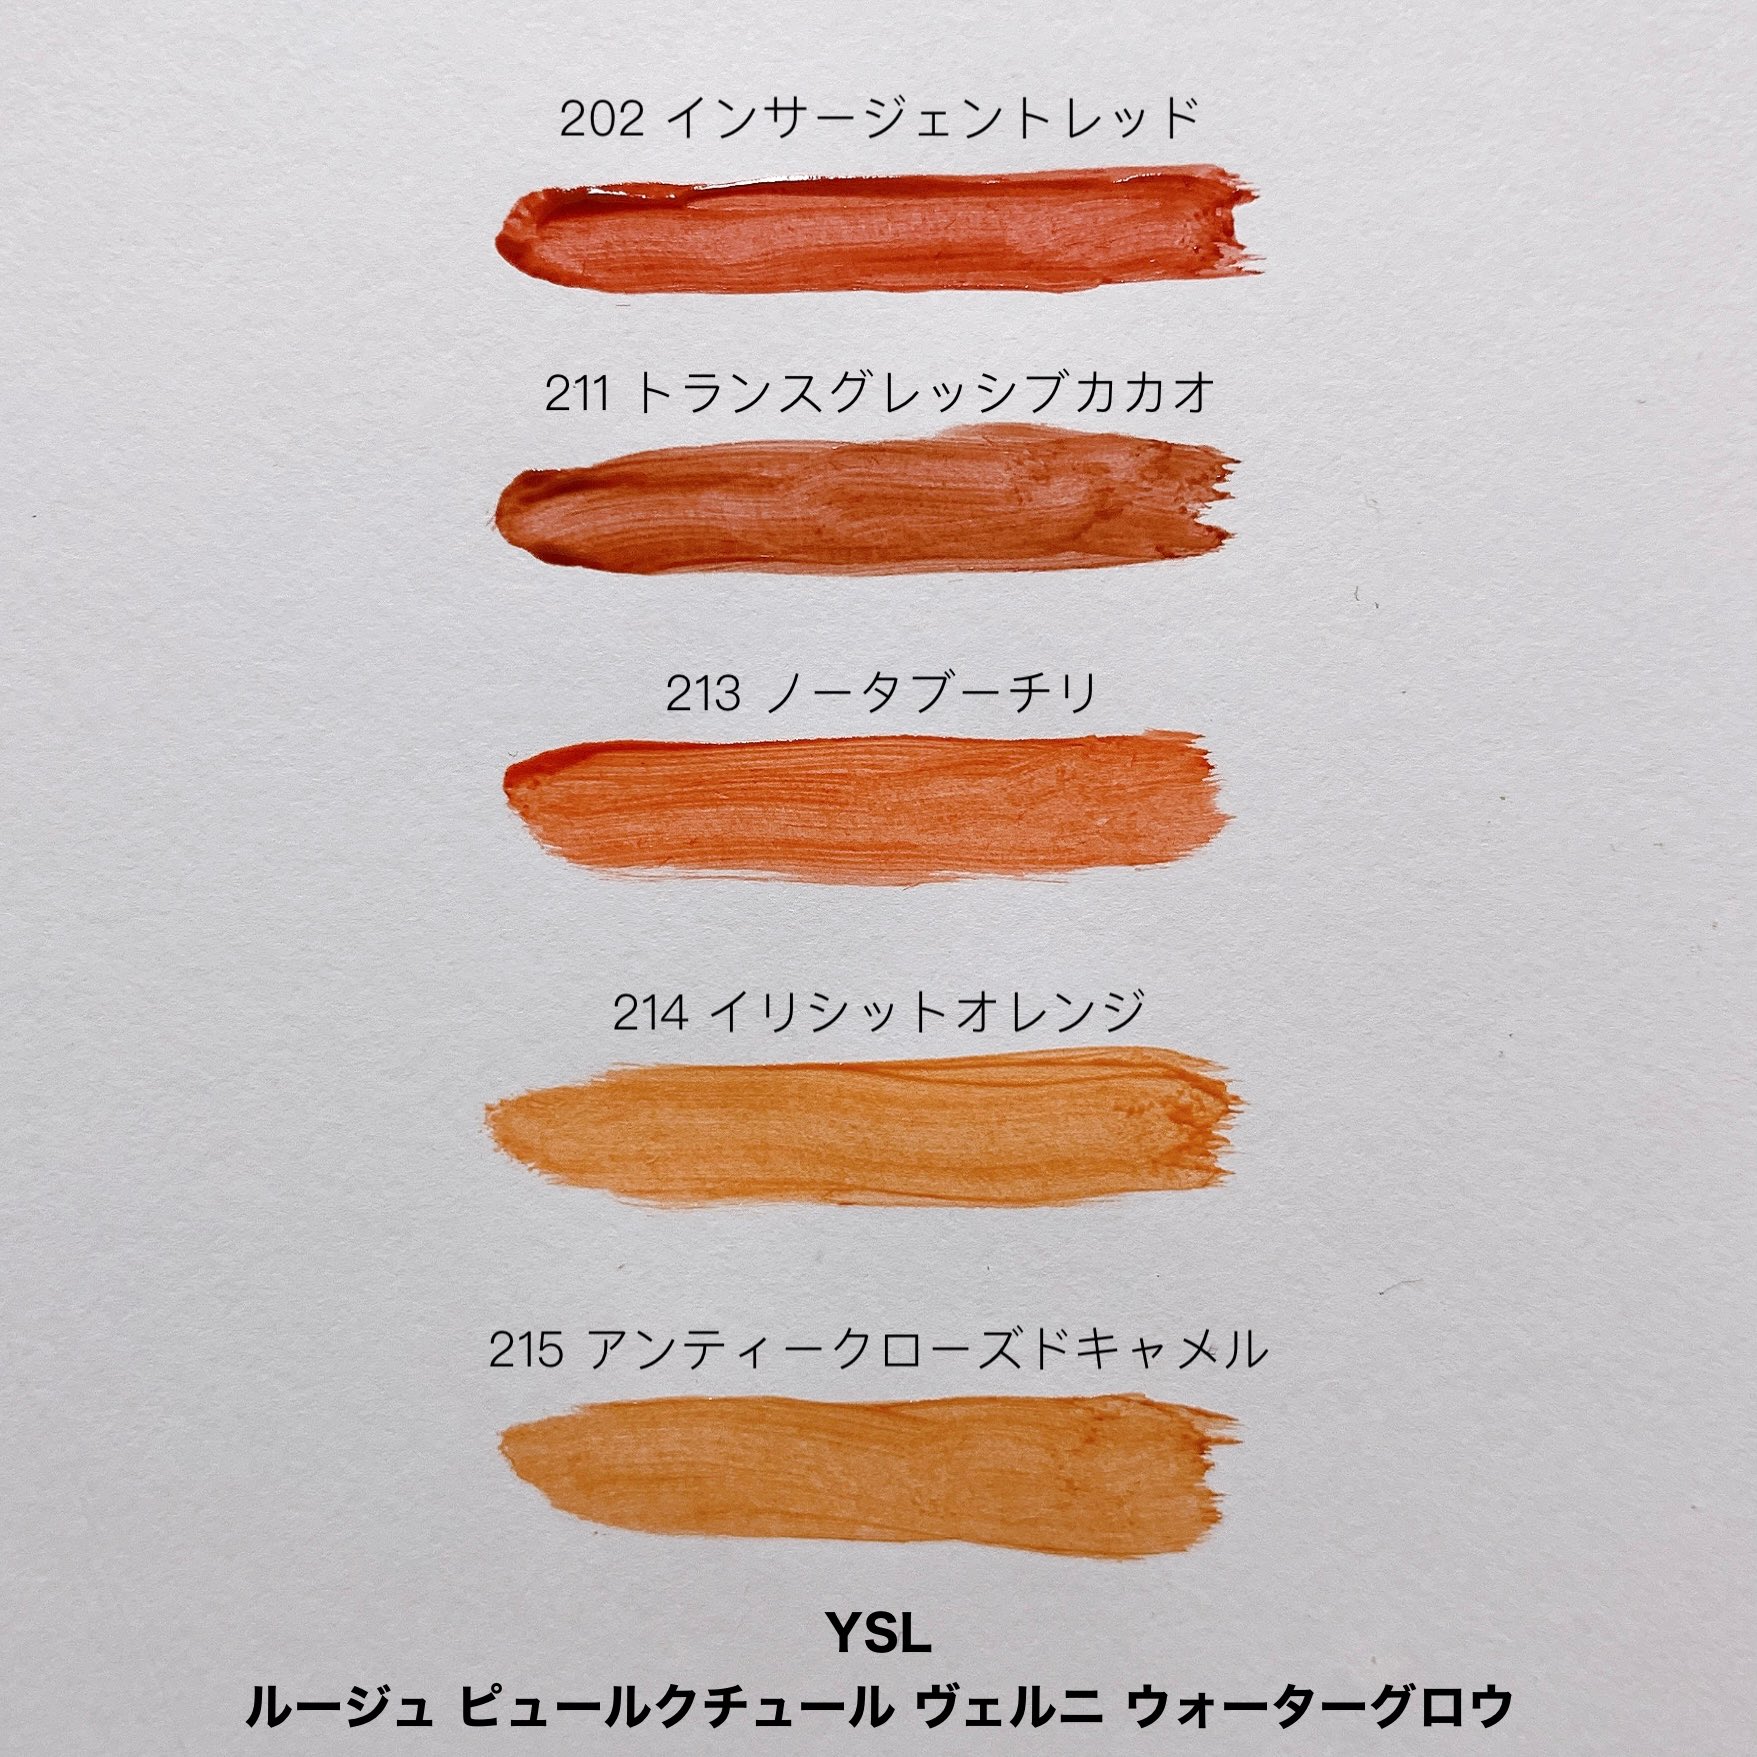 202 インサージェントレッド
211 トランスグレッシブカカオ
213 ノータブーチリ
214 イリシットオレンジ
215 アンティークローズドキャメル
YSL
ルージュ ピュールクチュール ヴェルニ ウォーターグロウ